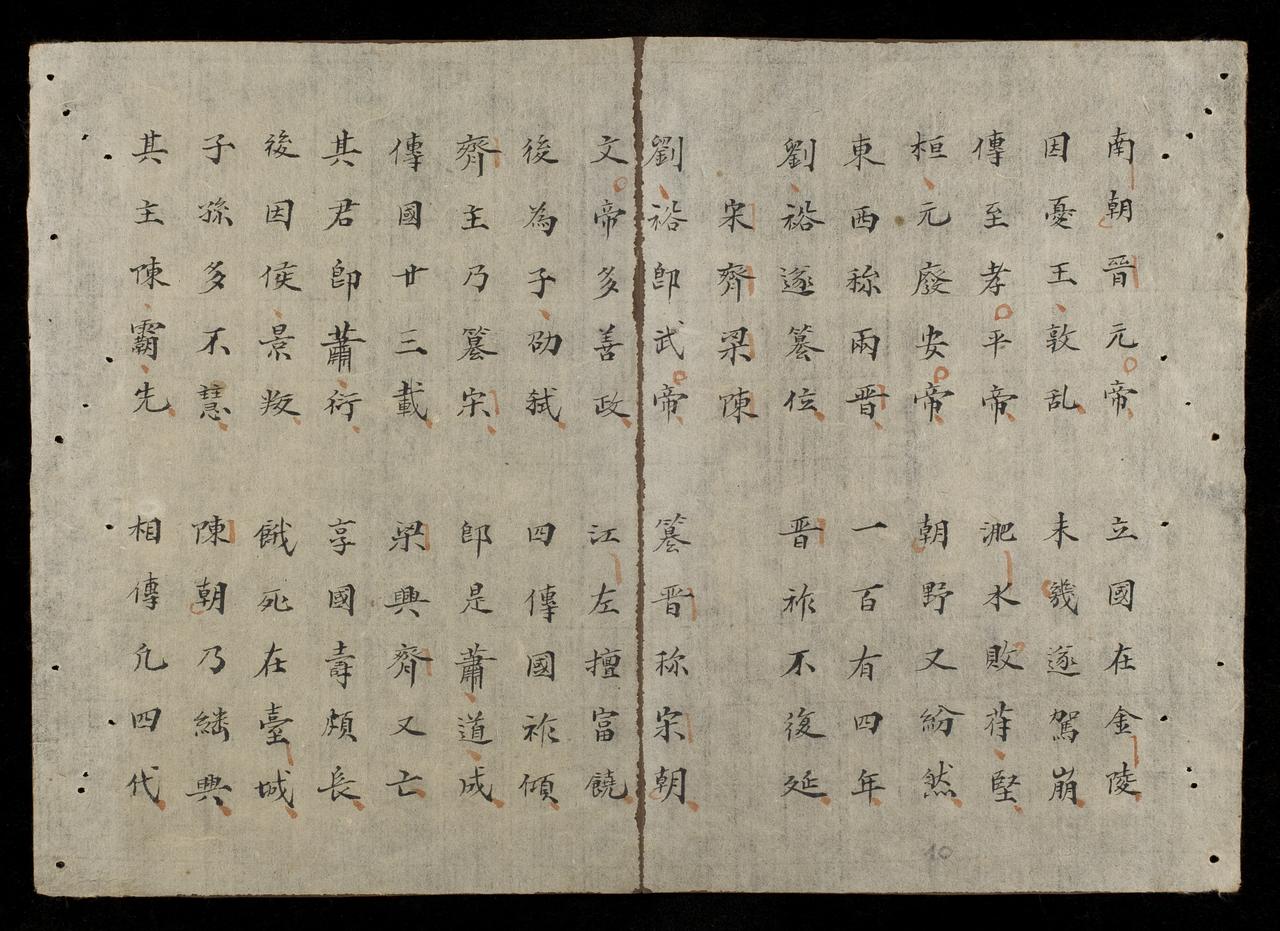 南朝晋元帝　立國在金陵
因憂王敦乱　未幾遂駕崩
傳至孝平帝　淝水敗苻堅
桓元廢安帝　朝野又紛然
東西称兩晋　一百有四年
劉裕遂篡位　晋祚不復延
宋齊梁陳
劉裕即武帝　篡晋称宋朝
文帝多善政　江左擅富饒
後為子劭弑　四傳國祚傾
齊主乃篡宋　即是蕭道成
傳國廿三載　梁興齊又亡
其君即蕭衍　享國壽頗長
後因侯景叛　餓死在臺城
子孫多不慧　陳朝乃繼興
其主陳霸先　相傳凢四代
10